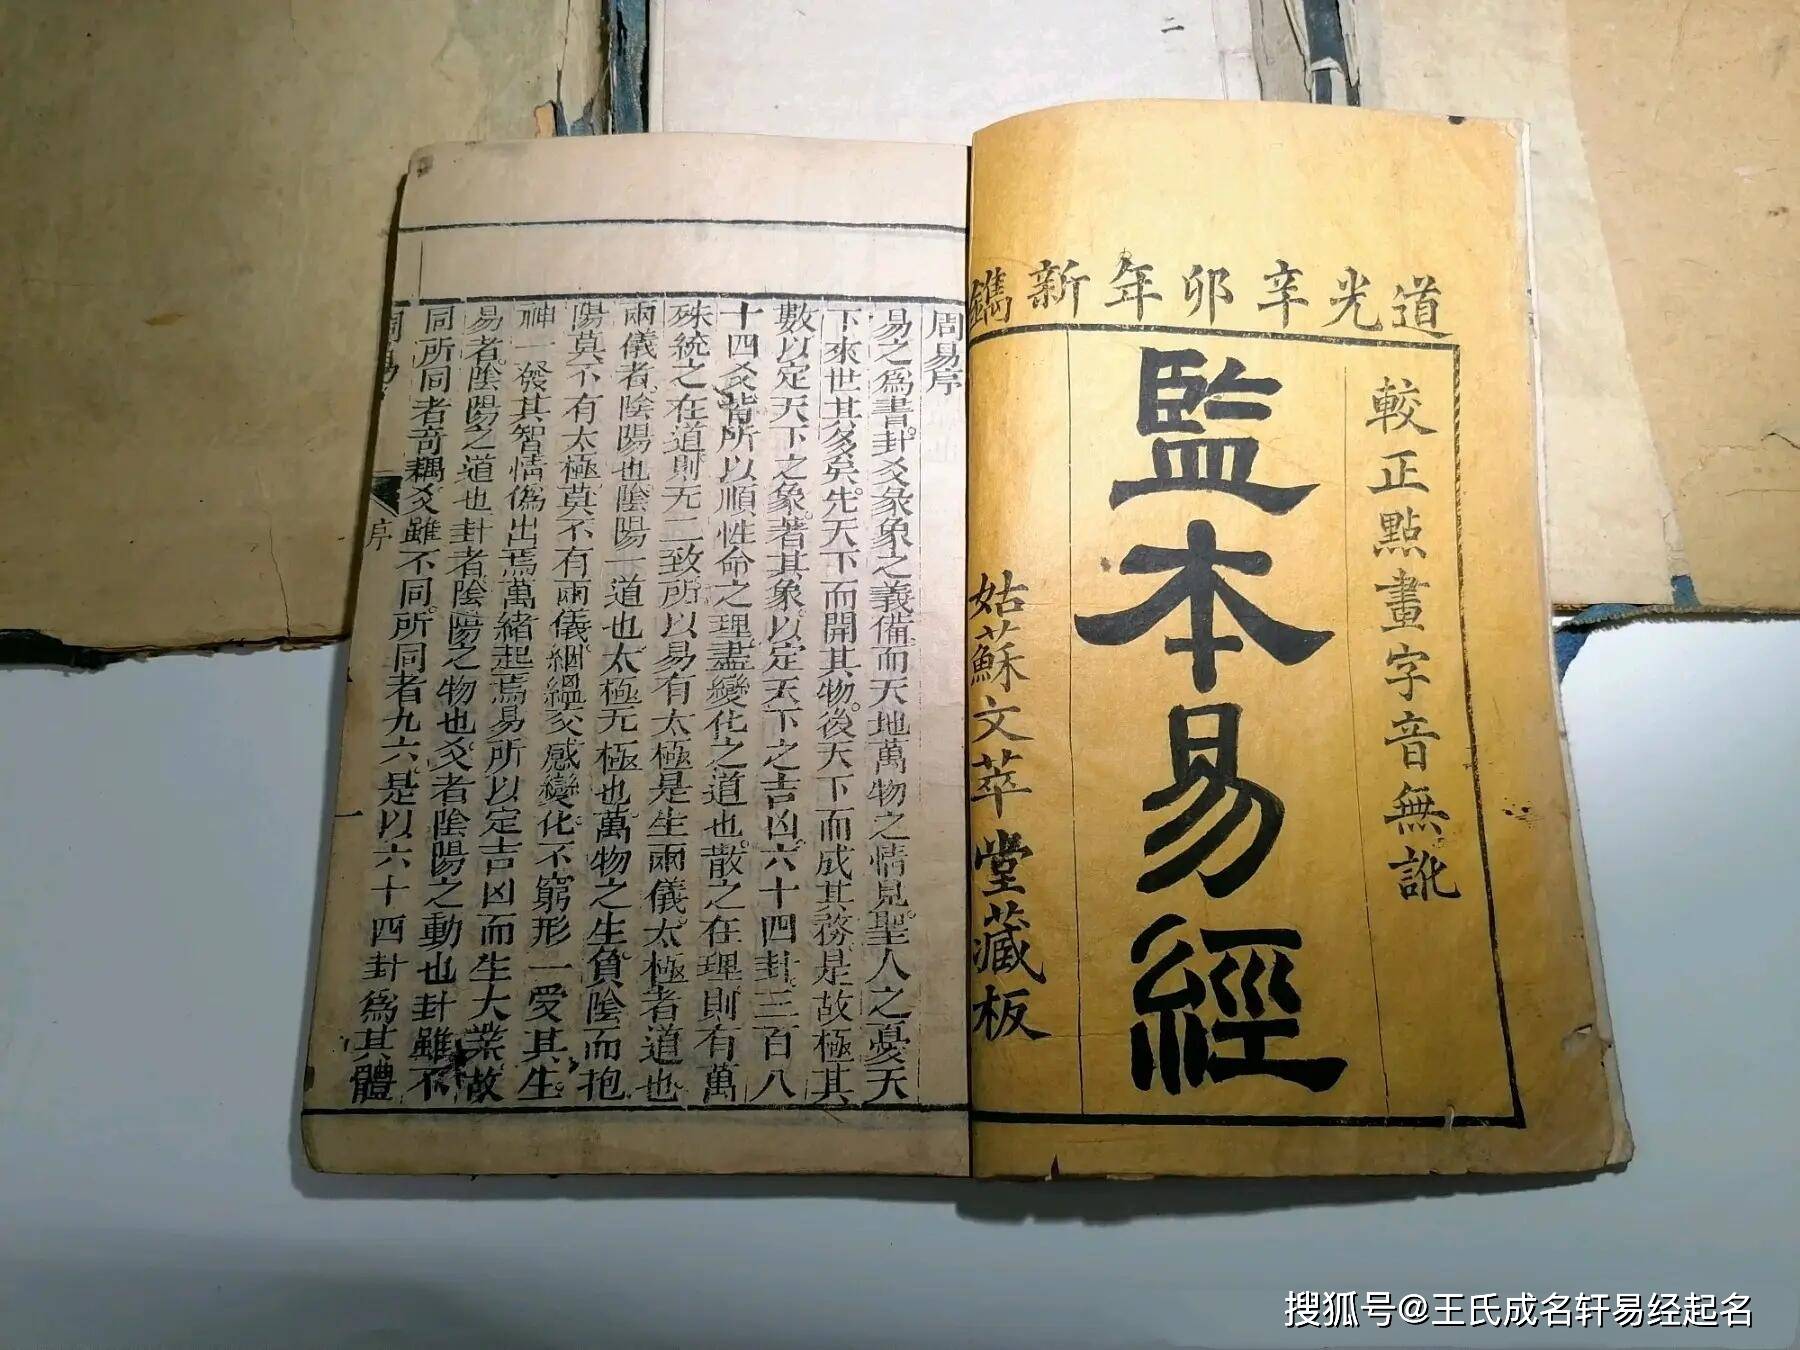 二
道光辛卯年新鐫
較正點畫字音無訛
監本易經
姑蘇文萃堂藏板
周易序
易之為書卦爻彖象之義備而天地萬物之情見聖人之憂天
下來世其多矣先天下而開其物後天下而成其務是故極其
數以定天下之象著其象以定天下之吉凶六十四卦三百八
十四爻皆所以順性命之理盡變化之道也散之在理則有萬
殊統之在道則无二致所以易有太極是生兩儀太極者道也
兩儀者陰陽也陰陽一道也太極无極也萬物之生負陰而抱
陽莫不有太極莫不有兩儀絪縕交感變化不窮形一受其生
神一發其智情偽出焉萬緒起焉易所以定吉凶而生大業故
易者陰陽之道也卦者陰陽之物也爻者陰陽之動也卦雖不
同所同者奇耦爻雖不同所同者九六是以六十四卦為其體
周易 序 一
搜狐号@王氏成名轩易经起名